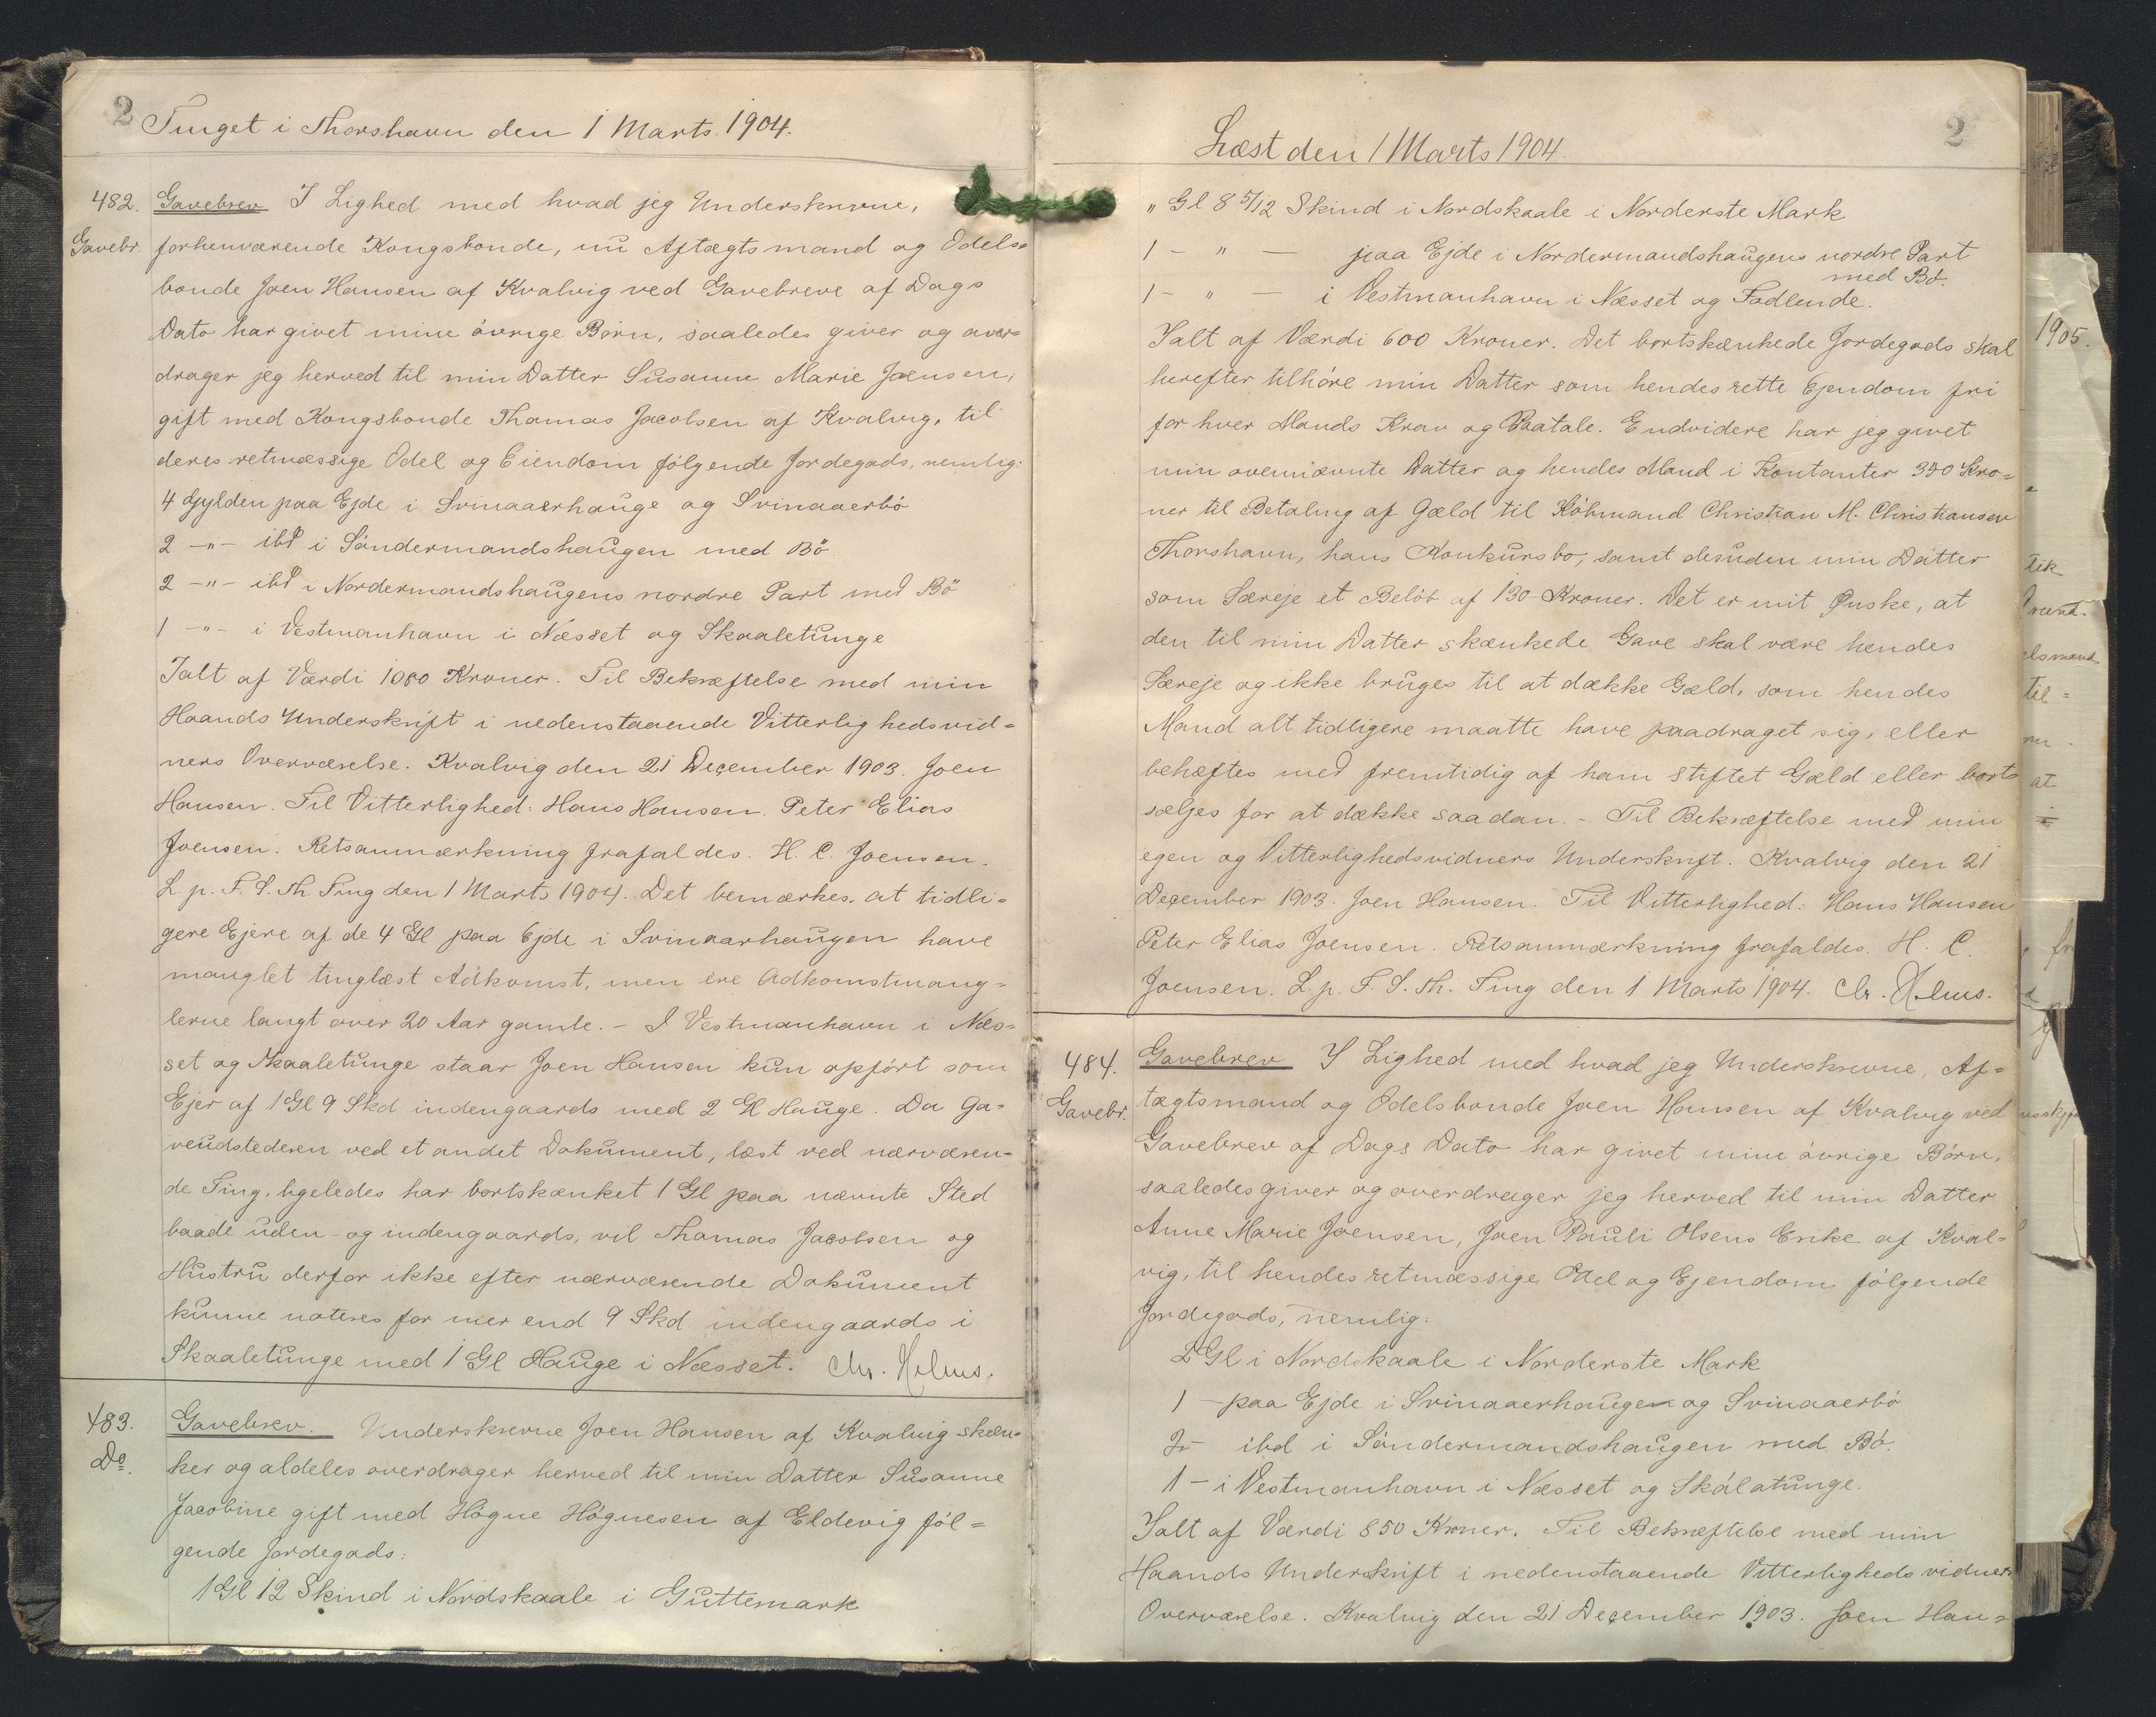 2
Tinget i Thorshavn den 1 Marts 1904.
482. Gavebrev I Lighed med hvad jeg Underskrevne,
Gavebr. forhenværende Kongsbonde, nu Aftægtsmand og Odels=
bonde Joen Hansen af Kvalvig ved Gavebreve af Dags
Dato har givet mine øvrige Børn, saaledes giver og over=
drager jeg herved til min Datter Susanne Marie Joensen,
gift med Kongsbonde Thomas Jacobsen af Kvalvig, til
deres retmæssige Odel og Eiendom følgende Jordegods, nemlig:
4 Gylden paa Ejde i Svinaaerhauge og Svinaaerbø
2 -"- ibd i Søndermandshaugen med Bø
2 -"- ibd i Nordermandshaugens nordre Part med Bø
1 -"- i Vestmanhavn i Næsset og Skaaletunge
Ialt af Værdi 1080 Kroner. Til Bekræftelse med min
Haands Underskrift i nedenstaaende Vitterlighedsvid=
ners Overværelse. Kvalvig den 21 December 1903. Joen
Hansen. Til Vitterlighed: Hans Hansen. Peter Elias
Joensen. Retsanmærkning frafaldes. H. C. Joensen.
L. p. F. S. Th. Ting den 1 Marts 1904. Det bemærkes, at tidli=
gere Ejere af de 4 Gl paa Ejde i Svinaarhaugen have
manglet tinglæst Adkomst, men ere Adkomstmang=
lerne langt over 20 Aar gamle. - I Vestmanhavn i Næs=
set og Skaaletunge staar Joen Hansen kun opført som
Ejer af 1 Gl 9 Skd indengaards med 2 Gl Hauge. Da Ga=
veudstederen ved et andet Dokument, læst ved nærværen=
de Ting, ligeledes har bortskænket 1 Gl paa nævnte Sted
baade uden- og indengaards, vil Thomas Jacobsen og
Hustru derfor ikke efter nærværende Dokument
kunne noteres for mer end 9 Skd indengaards i
Skaaletunge med 1 Gl Hauge i Næsset. Chr. Helms.
483. Gavebrev. Underskrevne Joen Hansen af Kvalvig skæn=
Do. ker og aldeles overdrager herved til min Datter Susanne
Jacobine gift med Høgne Høgnesen af Eldevig føl=
gende Jordegods:
1 Gl 12 Skind i Nordskaale i Guttemark
2
Læst den 1 Marts 1904.
" Gl 8 5/12 Skind i Nordskaale i Norderste Mark
1 - " - paa Ejde i Nordermandshaugens nordre Part
med Bø.
1 - " - i Vestmanhavn i Næsset og Fodlende.
Ialt af Værdi 600 Kroner. Det bortskænkede Jordegods skal
herefter tilhøre min Datter som hendes rette Ejendom fri
for hver Mands Krav og Paatale. Endvidere har jeg givet
min ovennævnte Datter og hendes Mand i Kontanter 350 Kro=
ner til Betaling af Gæld til Købmand Christian M. Christiansen
Thorshavn, hans Konkursbo, samt desuden min Datter
som Særeje et Beløb af 130 Kroner. Det er mit Ønske, at
den til min Datter skænkede Gave skal være hendes
Særeje og ikke bruges til at dække Gæld, som hendes
Mand alt tidligere maatte have paadraget sig, eller
behæftes med fremtidig af ham stiftet Gæld eller borts
sælges for at dække saadan. - Til Bekræftelse med min
egen og Vitterlighedsvidners Underskrift. Kvalvig den 21
December 1903. Joen Hansen. Til Vitterlighed: Hans Hansen
Peter Elias Joensen. Retsanmærkning frafaldes. H. C.
Joensen. L. p. F. S. Th. Ting den 1 Marts 1904. Chr. Helms.
484. Gavebrev I Lighed med hvad jeg Underskrevne, Af=
Gavebr. tægtsmand og Odelsbonde Joen Hansen af Kvalvig ved
Gavebrev af Dags Dato har givet mine øvrige Børn,
saaledes giver og overdrager jeg herved til min Datter
Anne Marie Joensen, Joen Pauli Olsens Enke af Kval=
vig, til hendes retmæssige Odel og Ejendom følgende
Jordegods, nemlig:
2 Gl i Nordskaale i Norderste Mark
1 - paa Ejde i Svinaaerhaugen og Svinaaerbø
2 - ibd i Søndermandshaugen med Bø.
1 - i Vestmanhavn i Næsset og Skálatunge.
Ialt af Værdi 850 Kroner. Til Bekræftelse med min
Haands Underskrift i nedenstaaende Vitterligheds vidners
Overværelse. Kvalvig den 21 December 1903. Joen Han=
1905.
til=
at